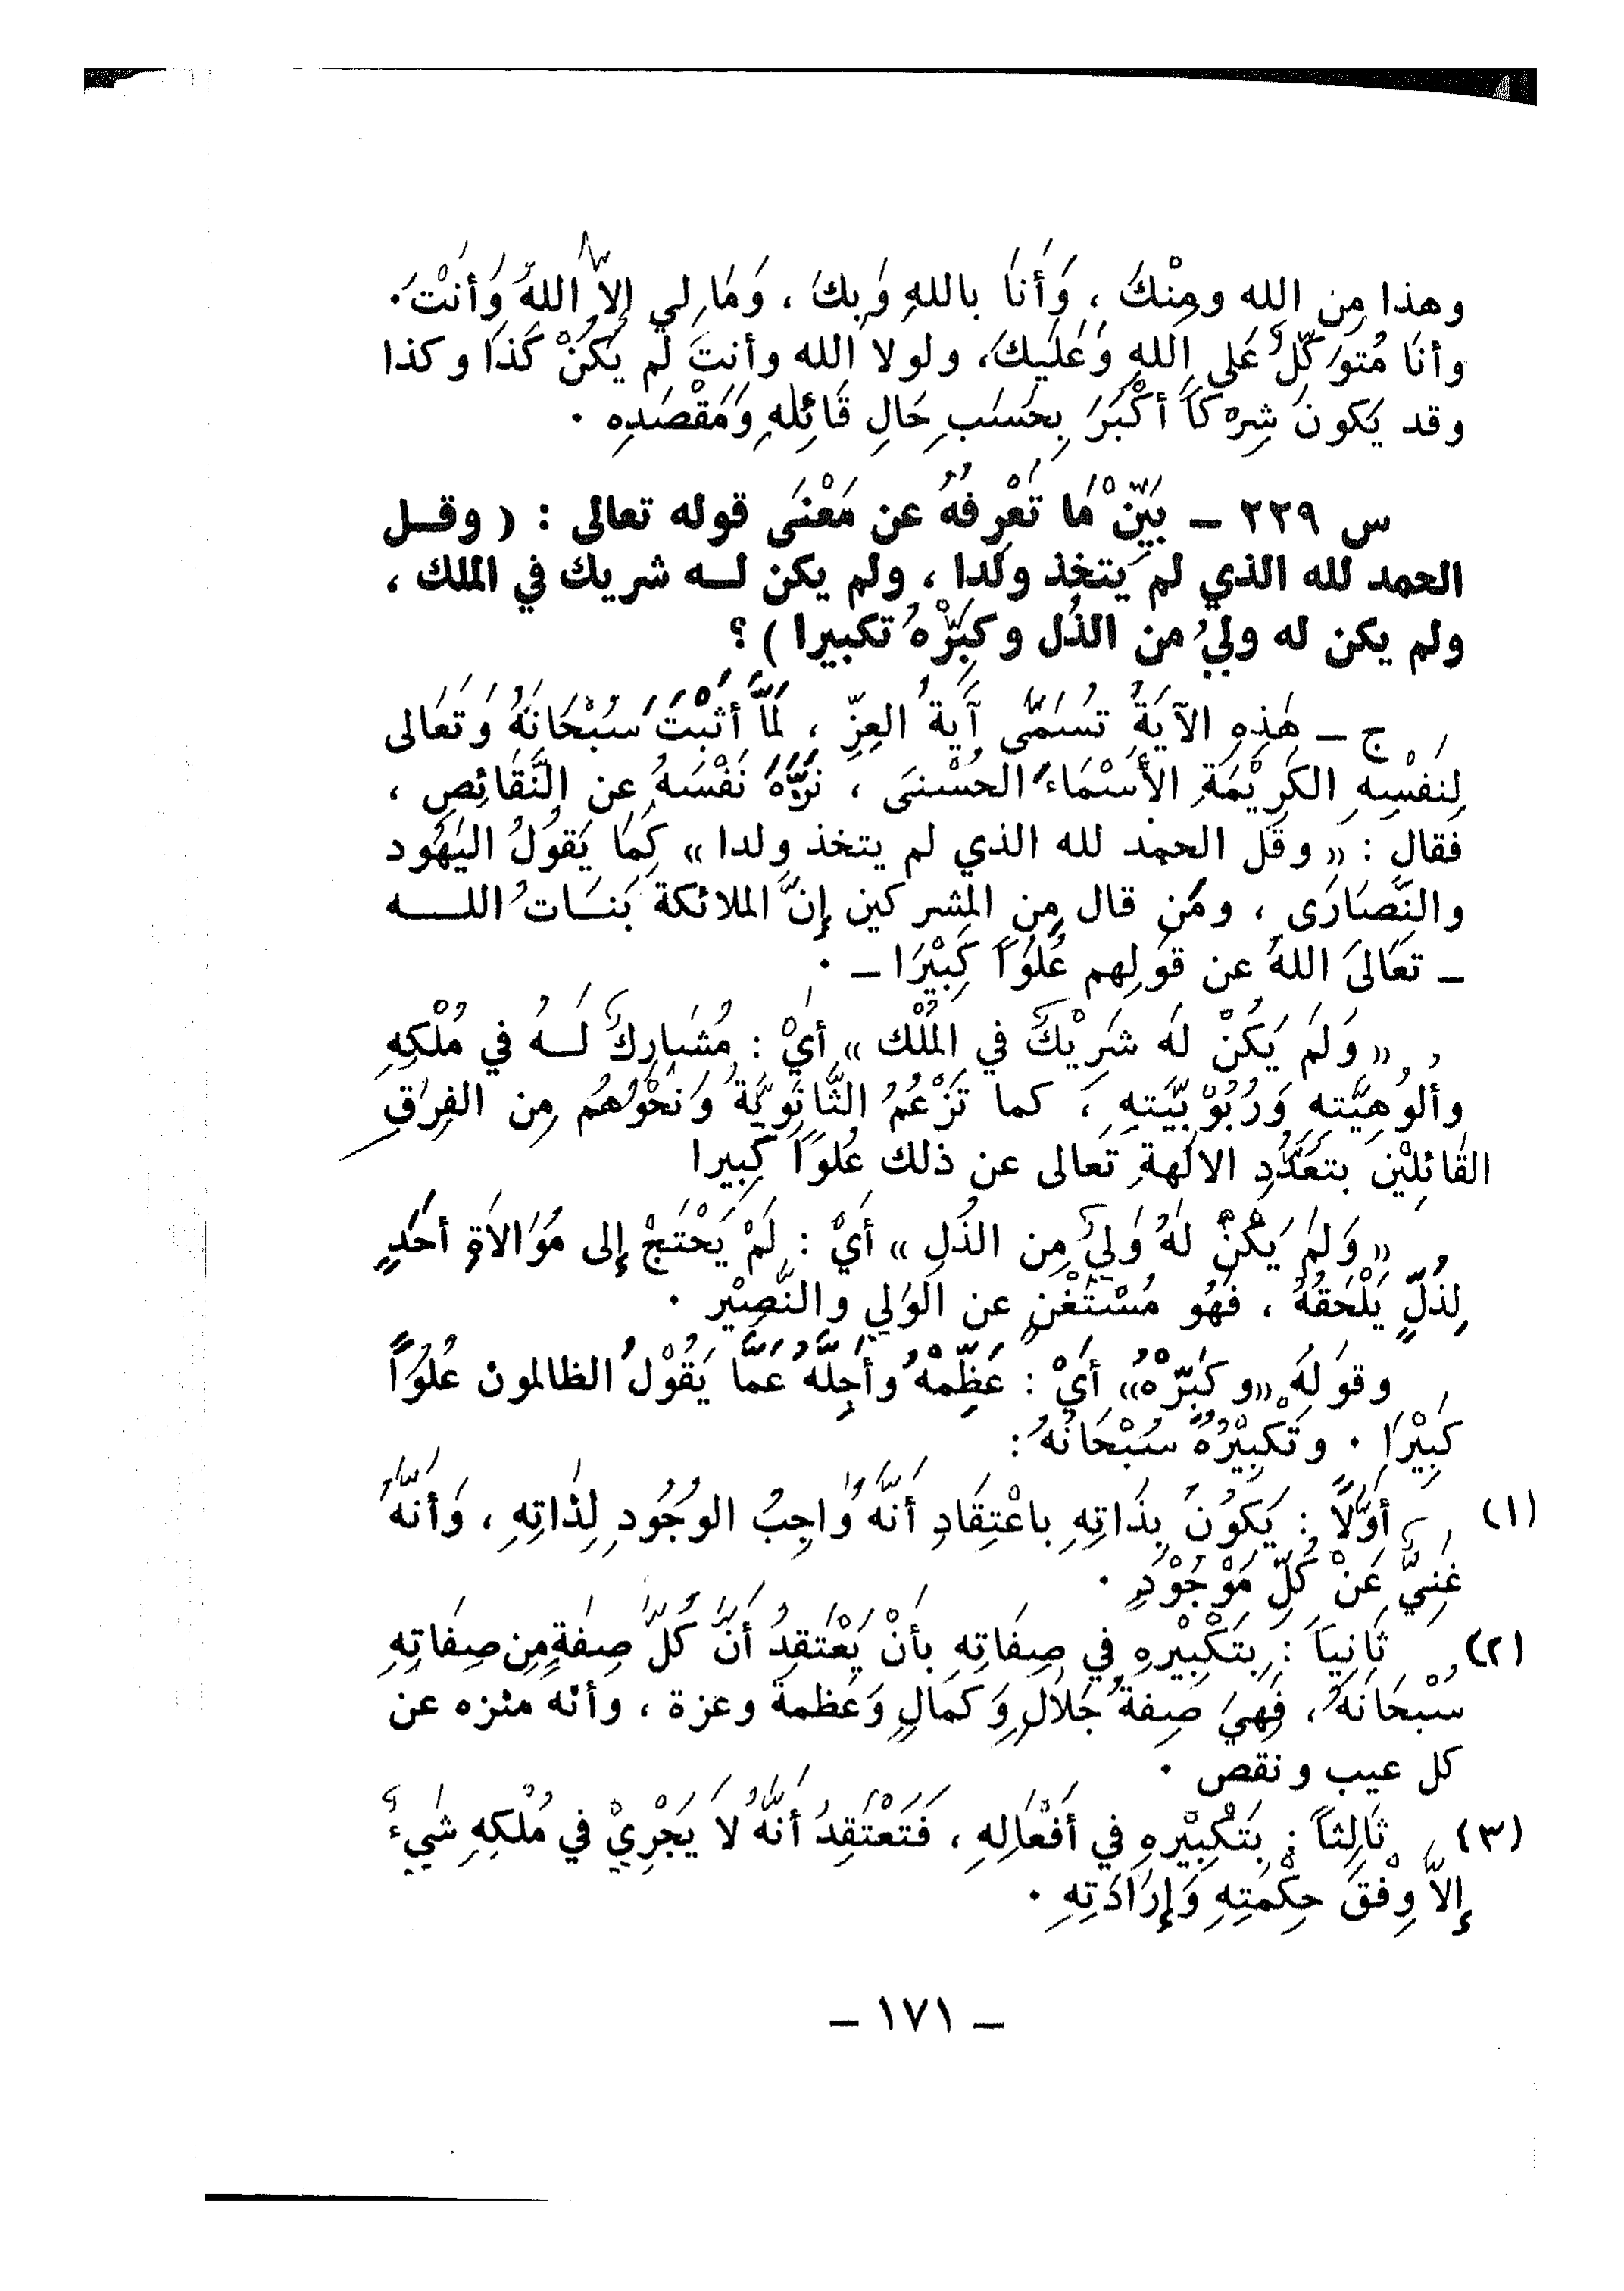 وهذا مِن الله ومِنْكَ ، وَأَنَا باللهِ وَبِكَ ، وَمَا لي إلاَّ اللهُ وَأنتَ .
وأنَا مُتوَكِّلٌ عَلى اللهِ وَعَلَيكَ، ولولا الله وأنتَ لَم يَكُنْ كَذَا وكذا
وقد يَكون شِرْكاً أكْبَرَ بِحَسَبِ حَالِ قَائِلهِ وَمَقْصَدِهِ .
س ٢٢٩ – بَيِّنْ مَا تَعْرِفُهُ عن مَعْنَى قوله تعالى : ( وقـل
الحمد لله الذي لم يتخذ ولدا ، ولم يكن لـه شريك في الملك ،
ولم يكن له وليُ من الذُل وكبِّرْهُ تكبيرا ) ؟
ج – هَذِهِ الآيَةُ تُسَمَّى آيَة العِزِّ ، لَمَّا أثْبَتَ سُبْحَانَهُ وَتَعَالى
لِنَفْسِهِ الكَرِيْمَةِ الأَسْمَاءَ الحُسْنىَ ، نَزَّهَ نَفْسَهُ عن النَّقَائِصِ ،
فقال : « وقُل الحمد لله الذي لم يتخذ ولدا » كَمَا يَقُولُ اليَهُود
والنَّصَارَى ، ومَن قال مِن المشركين إنَّ الملائكة بَنـَـاتُ اللـــه
– تَعَالىَ اللهُ عن قَولِهم عُلُوَّاً كَبِيْرَا – .
« وَلَم يَكُنْ لَه شَرِيْكٌ في المُلْك » أيْ : مُشَارِكٌ لَـهُ في مُلْكِهِ
وألُوهِيَّتهِ وَرُبُوْبِيَّتهِ ، كما تَزْعُمُ الثَّانَوِيَّةُ وَنَحْوُهُم مِن الفِرَقِ
القَائِلِيْن بتَعَدُّدِ الالَهةِ تَعالى عن ذلك عُلوَّاً كبِيرا
« وَلَم يَكُنْ لَهُ وَلِيٌ مِن الذُلِ » أيْ : لَمْ يَحْتَجْ إلى مُوَالاَةِ أحَدٍ
لِذُلٍّ يَلْحَقُهُ ، فَهُو مُسْتَغْنٍ عن الوَلي والنَّصِيْر .
وقولَه «وكَبِّرْهُ» أيْ : عَظِّمْهُ وأجِلَّهُ عَمَّا يَقُوْلُ الظالمون عُلُوَّاً
كَبِيْرَا . وتَكْبِيْرُهُ سُبْحَانَهُ :
(١) أوَّلاً : يَكُونُ بِذَاتِهِ باعْتِقَادِ أنَّهُ وَاجِبُ الوجُوُدِ لِذَاتِهِ ، وَأنَّهُ
غَنِيٌّ عَنْ كُلِّ مَوْجُوْدٍ .
(٢) ثَانِيَاً : بِتَكْبِيْرِهِ في صِفَاتِهِ بأنْ يَعْتَقِدُ أنَّ كُلَّ صِفةٍ مِن صِفاتِهِ
سُبْحَانَهُ ، فَهِيَ صِفةُ جَلاَلٍ وَكمَالٍ وَعَظمة وعزة ، وأنه منزه عن
كل عيب ونقص .
(٣) ثَالِثاً : بِتَكْبِيْرِهِ في أفْعَالِهِ ، فَتَعْتَقِدُ أنَّهُ لاَ يَجْرِيْ في مُلْكِهِ شَيءٌ
إلاَّ وِفْقَ حِكْمَتِهِ وَإرَادَتِهِ .
– ١٧١ –